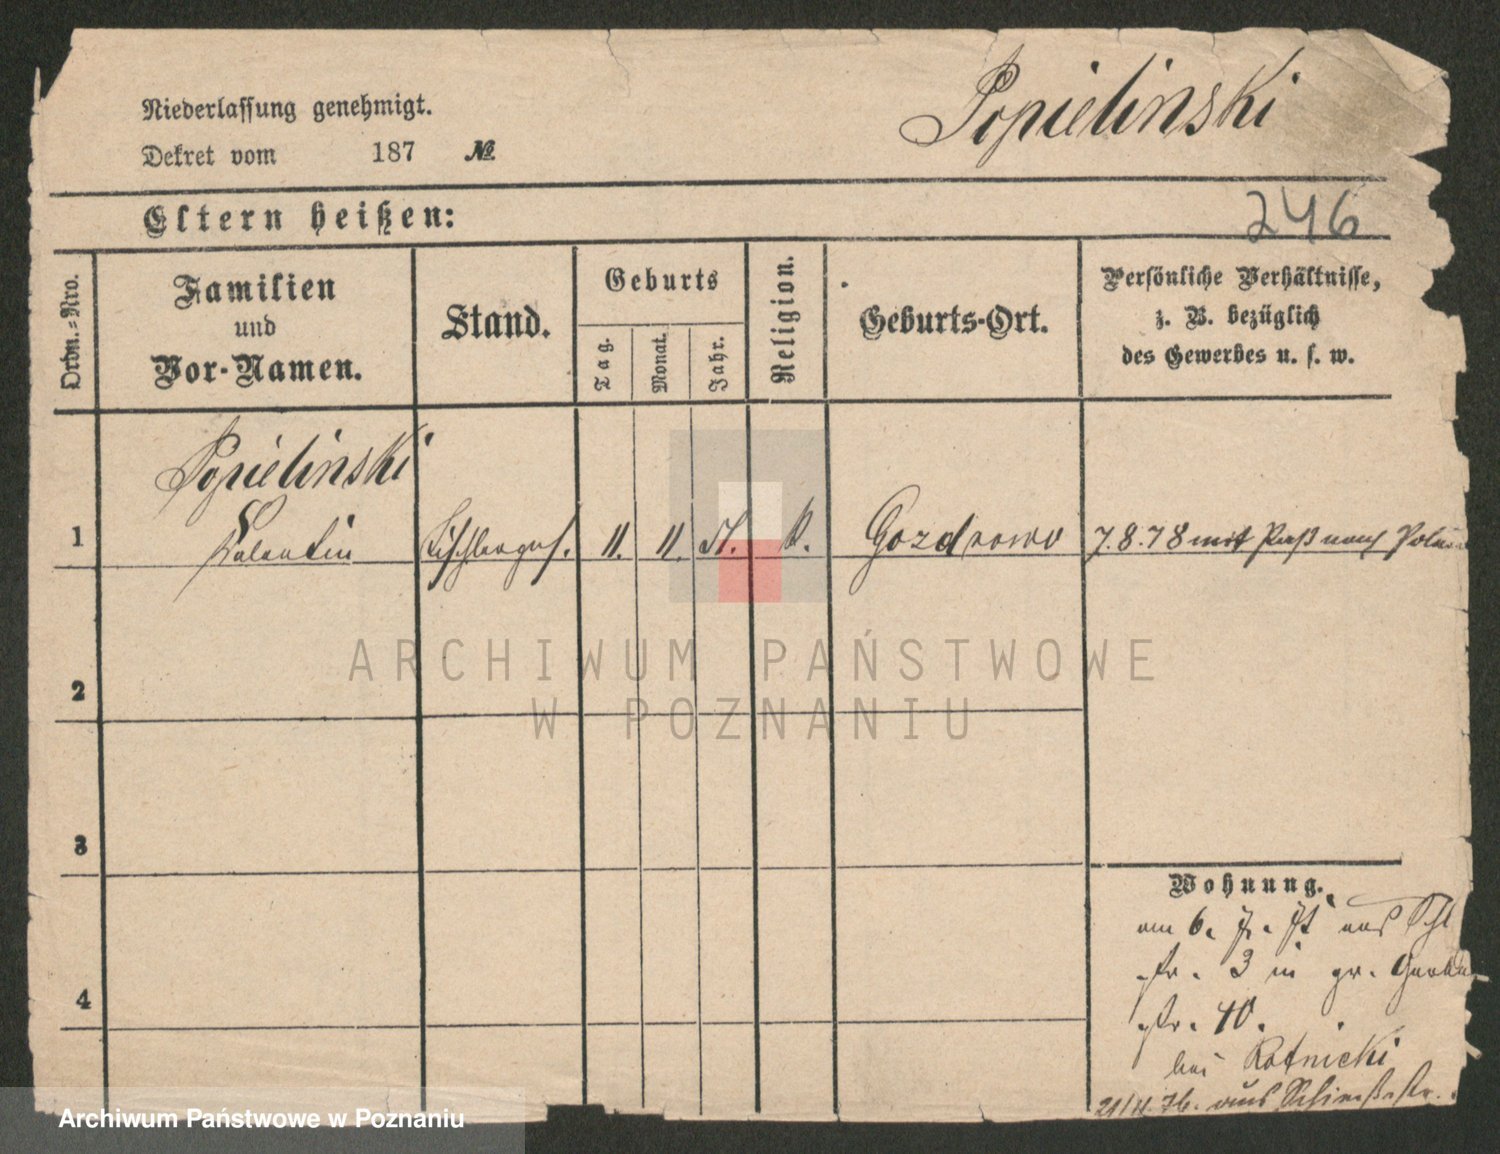 Niederlassung genehmigt.
Popielinski
Dekret vom 187 №
Eltern heißen:
246
Ordn.=Nro.
Familien
und
Vor-Namen.
Stand.
Geburts
Tag.
Monat.
Jahr.
Religion.
Geburts-Ort.
Persönliche Verhältnisse,
z. B. bezüglich
des Gewerbes u. s. w.
Popielinski
1 Valentin Tischlerges. 11. 11. K. Gozdowo 7.8.78 mit Paß nach Polen
2
3
4
Wohnung.
am 6. 7. aus
str. 3 in gr. Gerber
str. 40.
bei Rotnicki
21/11.76. aus
ARCHIWUM PAŃSTWOWE
W POZNANIU
Archiwum Państwowe w Poznaniu